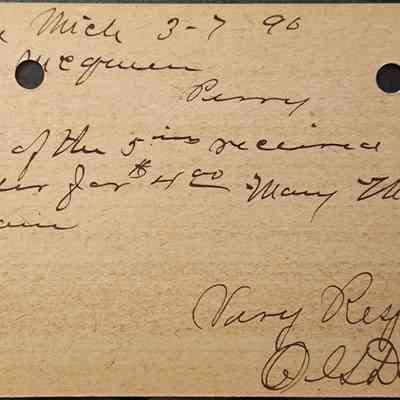 Mich 3-7 90
McQueen
Perry
of the 5 ins received
for $4.00 Many Th
Vary Resp